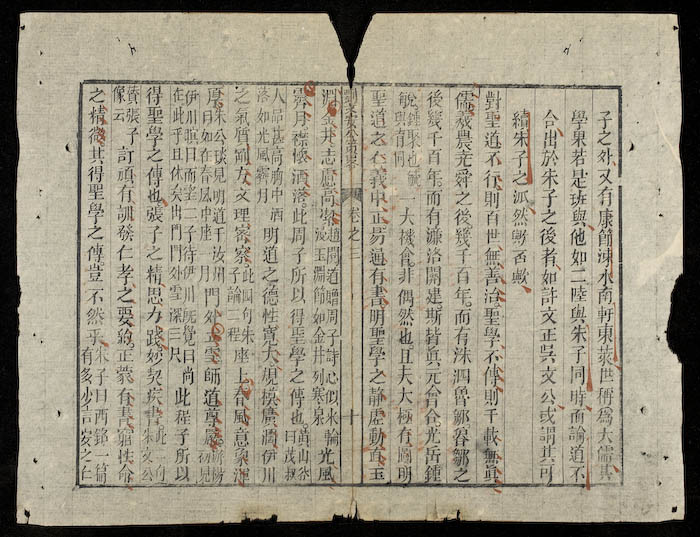 子之外又有康節涑水南軒東萊世稱爲大儒其
學果若是班與他如二陸與朱子同時而論道不
合出於朱子之後者如許文正吳文公或謂其可
續朱子之派然歟否歟
對聖道不行則百世無善治聖學不傳則千載無眞
儒農堯舜之後幾千百年而有洙泗魯鄒之
後幾千百年而有濂洛關建斯皆眞元會合光岳鍾
毓鍾聚也毓與育同一大機會非偶然也且夫太極有圖明
聖道之在義中正易通有書明聖學之静虛動直玉
卷之三 十
淵金井志慮高潔趙閱道贈周子詩心似冰輪浸玉淵節如金井冽寒泉光風
霽月襟懷洒落此周子所以得聖學之傳也黃山谷曰茂叔
人品甚高胸中洒落如光風霽月明道之德性寬大規模廣濶伊川
之氣質剛方文理密察此四句朱子論二程座上春風意象渾
厚朱公掞見明道于汝州曰如在春風中座一月門外立雪師道尊嚴游楊初見
伊川瞑目而坐二子待伊川旣覺曰尚在此乎且休矣出門門外雪深三尺此程子所以
得聖學之傳也張子之精思力踐妙契疾書此一句朱文公
賛張子像云訂頑有訓發仁孝之要約正蒙有書窮性命
之精微其得聖學之傳豈不然乎朱子曰西銘一篇有多少言安之仁